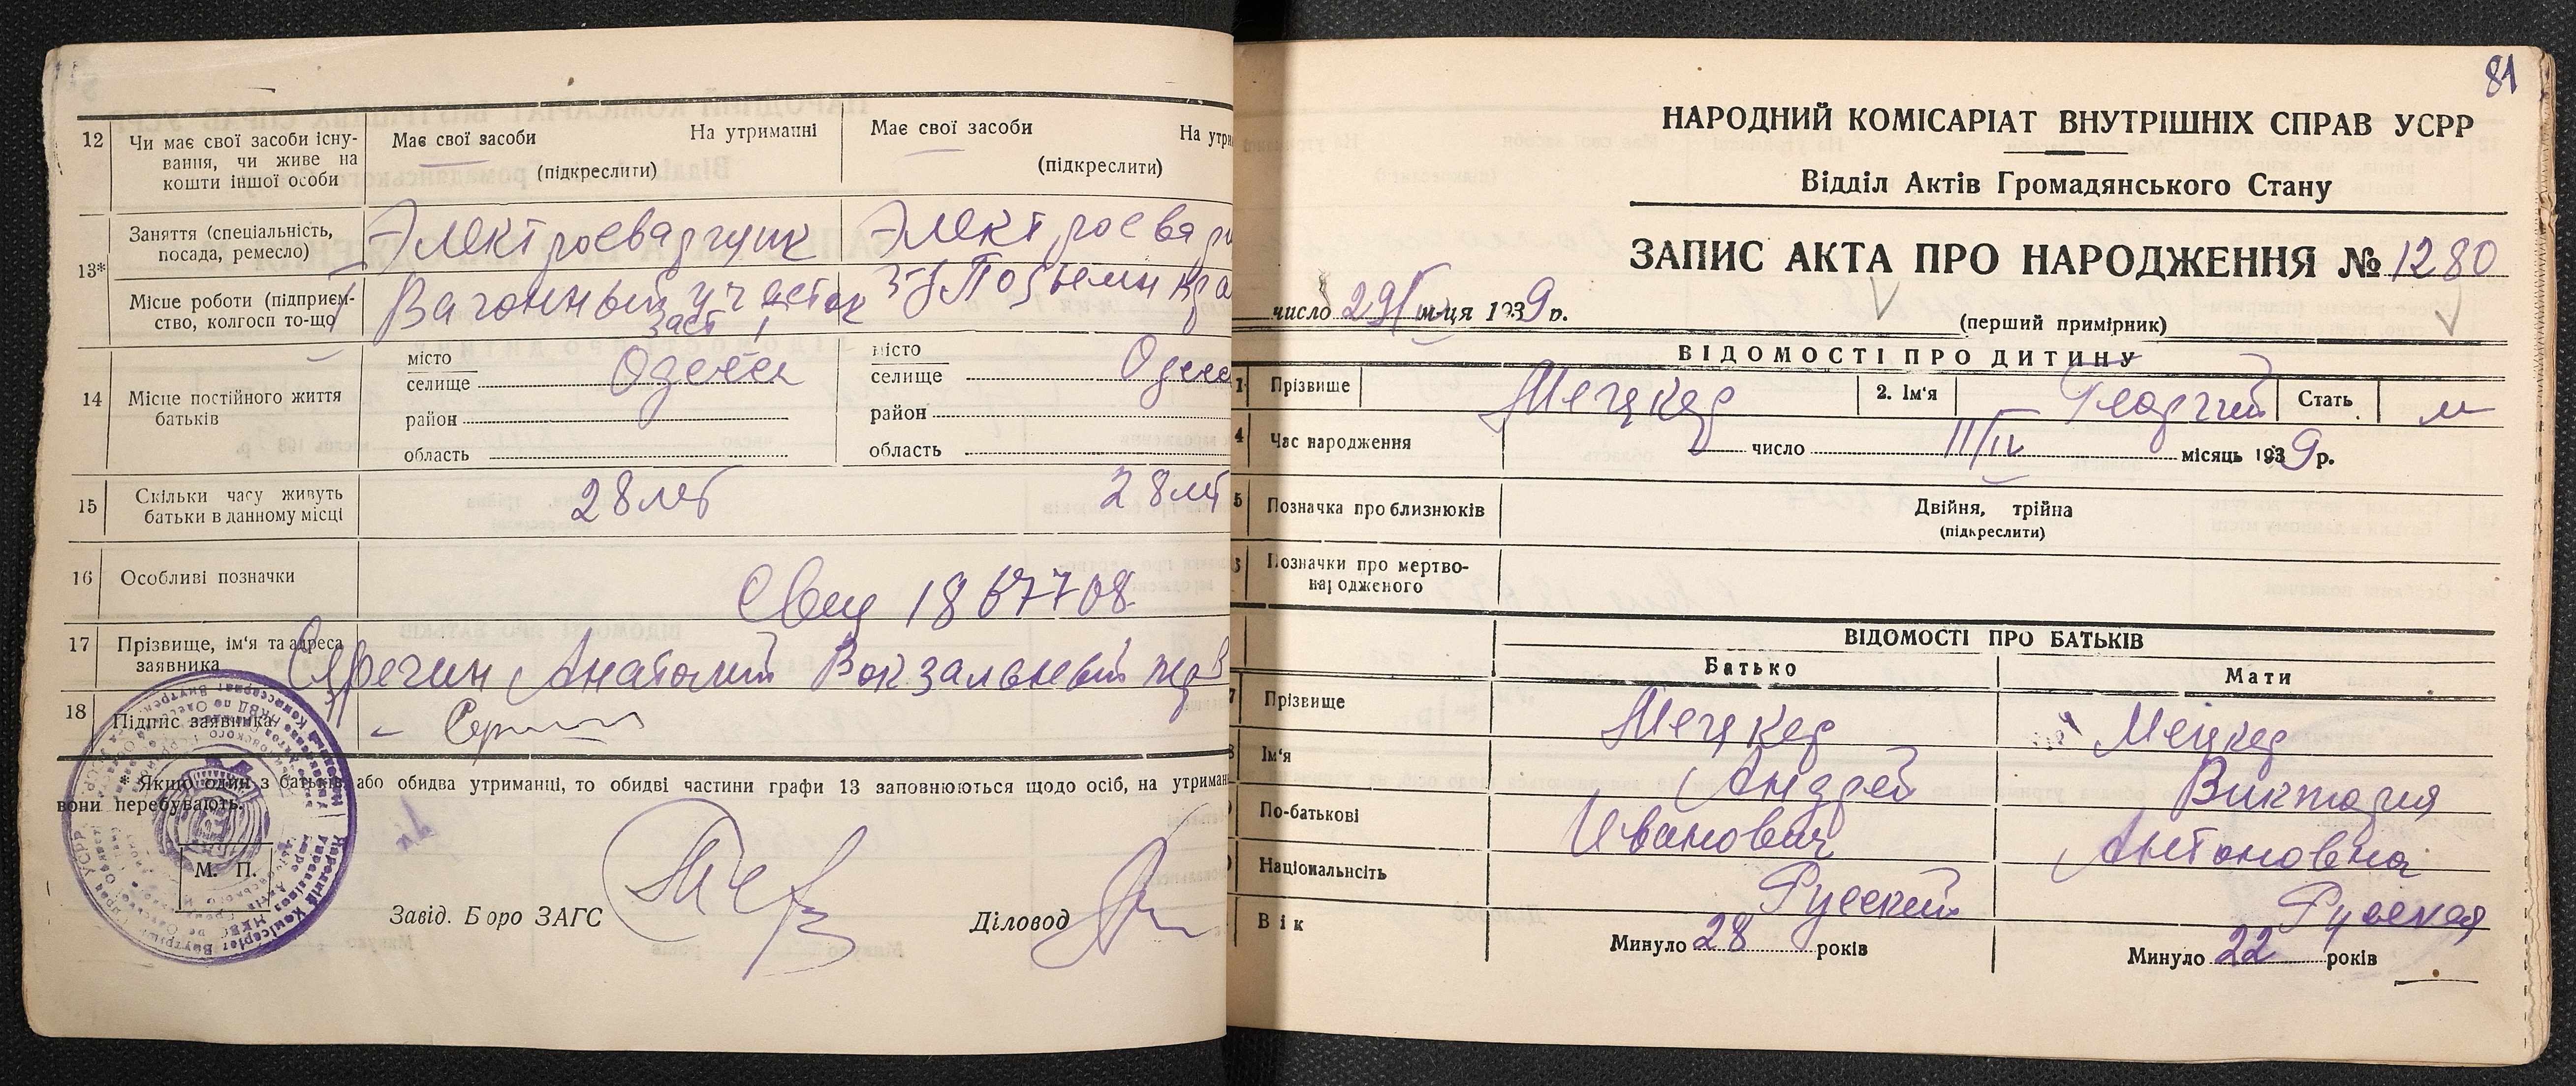 12 Чи має свої засоби існування, чи живе на кошти іншої особи
Має свої засоби На утриманні
(підкреслити)
Має свої засоби На утри
(підкреслити)
13* Заняття (спеціальність, посада, ремесло)
Электросварщик
Электросвар
Місце роботи (підприємство, колгосп то-що)
Вагонный участок
заст 1
З-д Подъемн кра
14 Місце постійного життя батьків
місто
селище Одесса
район
область
місто
селище Одес
район
область
15 Скільки часу живуть батьки в данному місці
28 лет
28 лет
16 Особливі позначки
17 Прізвище, ім'я та адреса заявника
Анатолий Вокзальный пер
18 Підпис заявника
* Якщо один з батьків або обидва утриманці, то обидві частини графи 13 заповнюються щодо осіб, на утриман
вони перебувають.
М. П.
Завід. Бюро ЗАГС
Діловод
81
НАРОДНИЙ КОМІСАРІАТ ВНУТРІШНІХ СПРАВ УСРР
Відділ Актів Громадянського Стану
ЗАПИС АКТА ПРО НАРОДЖЕННЯ № 1280
число 29/IV м-ця 1939 р.
(перший примірник)
ВІДОМОСТІ ПРО ДИТИНУ
1 Прізвище Мецкер 2. Ім'я Георгий Стать м
4 Час народження число 11/IV місяць 1939 р.
5 Позначка про близнюків Двійня, трійна
(підкреслити)
6 Позначки про мертвонародженого
ВІДОМОСТІ ПРО БАТЬКІВ
Батько Мати
7 Прізвище Мецкер Мецкер
8 Ім'я Андрей Виктория
9 По-батькові Иванович Антоновна
Національність Русский Русская
Вік Минуло 28 років Минуло 22 років